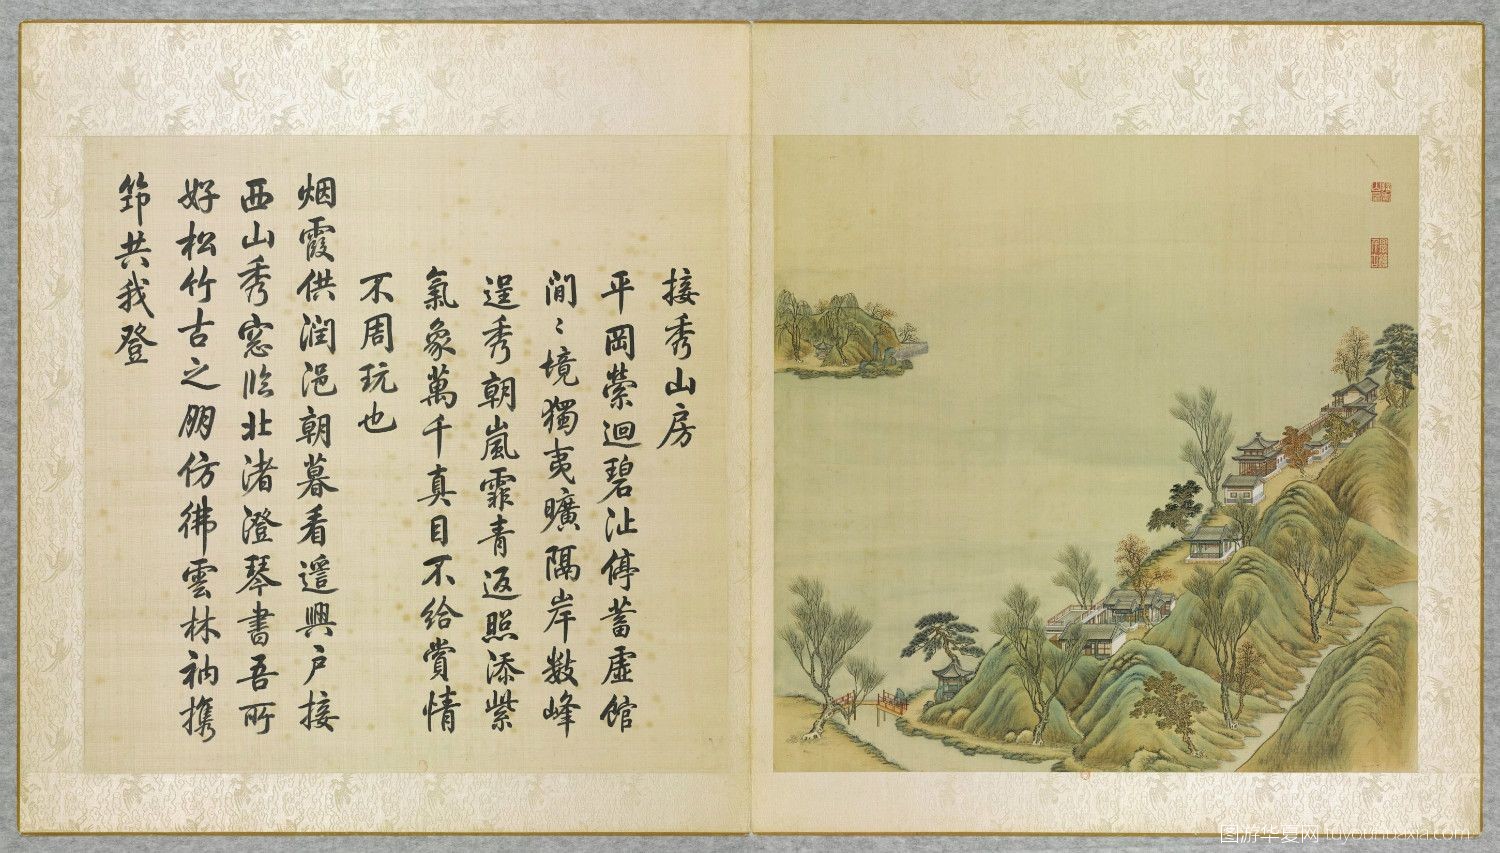 接秀山房
平岡縈迴碧沚停蓄虛館
閒〻境獨夷曠隔岸數峰
逞秀朝嵐霏青返照添紫
氣象萬千真目不給賞情
不周玩也
烟霞供潤浥朝暮看遥興户接
西山秀窓臨北渚澄琴書吾所
好松竹古之朋仿彿雲林衲携
筇共我登
图游华夏网 tuyouhuaxia.com